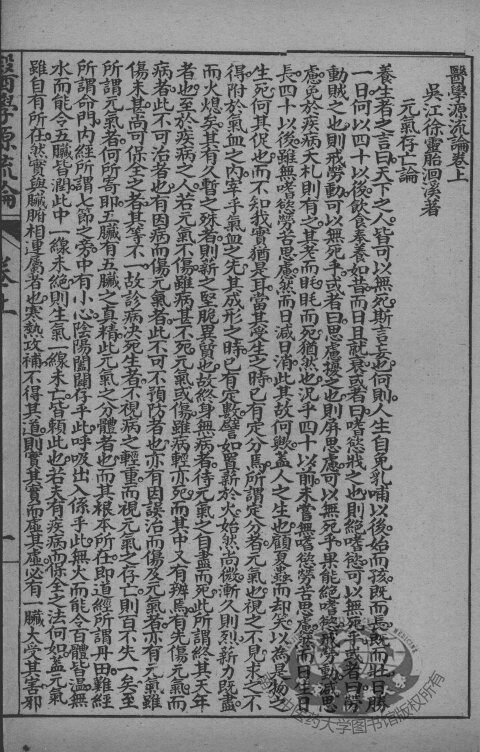 醫學源流論卷上
吳江徐靈胎洄溪著
元氣存亡論
養生者之言曰天下之人皆可以無死斯言妄也何則人生自免乳哺以後始而孩既而長既而壯日勝
一日何以四十以後飲食奉養如昔而日且就衰或者曰嗜慾戕之也則絕嗜慾可以無死乎或者曰勞
動賊之也則戒勞動可以無死乎或者曰思慮擾之也則屏思慮可以無死乎果能絕嗜慾戒勞動減思
慮免於疾病夭札則有之其老而眊眊而死猶然也況乎四十以前未嘗無嗜慾勞苦思慮然而日生日
長四十以後雖無嗜慾勞苦思慮然而日減日消此其故何歟蓋人之生也顧夏蟲而却笑以為是物之
生死何其促也而不知我實猶是耳當其受生之時已有定分焉所謂定分者元氣也視之不見求之不
得附於氣血之內宰乎氣血之先其成形之時已有定數譬如置薪於火始然尚微漸久則烈薪力既盡
而火熄矣其有久暫之殊者則薪之堅脆異質也故終身無病者待元氣之自盡而死此所謂終其天年
者也至於疾病之人若元氣不傷雖病甚不死元氣或傷雖病輕亦死而其中又有辨焉有先傷元氣而
病者此不可治者也有因病而傷元氣者此不可不預防者也亦有因誤治而傷及元氣者亦有元氣雖
傷未甚尚可保全之者其等不一故診病決死生者不視病之輕重而視元氣之存亡則百不失一矣至
所謂元氣者何所寄耶五臟有五臟之真精此元氣之分體者也而其根本所在即道經所謂丹田難經
所謂命門內經所謂七節之旁中有小心陰陽闔闢存乎此呼吸出入係乎此無火而能令百體皆溫無
水而能令五臟皆潤此中一線未絕則生氣一線未亡皆賴此也若夫有疾病而保全之法何如蓋元氣
雖自有所在然實與臟腑相連屬者也寒熱攻補不得其道則實其實而虛其虛必有一臟大受其害邪
醫學源流論
卷上
一